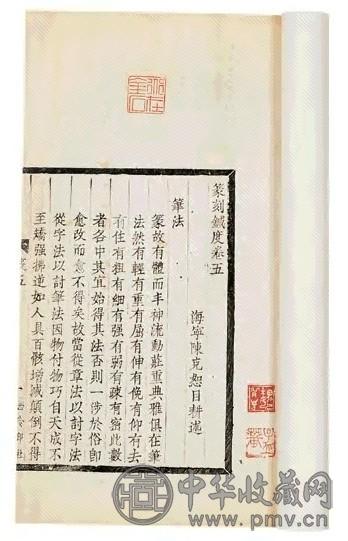 篆刻鍼度卷五
海寧陳克恕目耕述
筆法
篆故有體而丰神流動莊重典雅俱在筆
法然有輕有重有屈有伸有俛有仰有去
有住有粗有細有强有弱有疎有密此數
者各中其宜始得其法否則一涉於俗卽
愈改而愈不得矣故當從章法以討字法
從字法以討筆法因物付物巧自天成不
至矯强拂逆如人具百骸增減顛倒不得
卷五
一
西泠印社
中华收藏网
www.pmv.cn